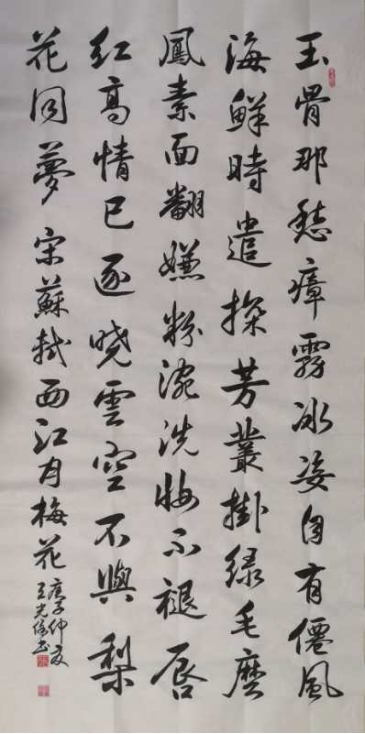 玉骨那愁瘴霧冰姿自有僊風
海鮮時遣探芳叢掛绿毛麼
鳳素面翻嫌粉涴洗妝不褪唇
红高情已逐晓雲空不與梨
花同夢宋蘇軾西江月梅花
庚子仲夏
王光